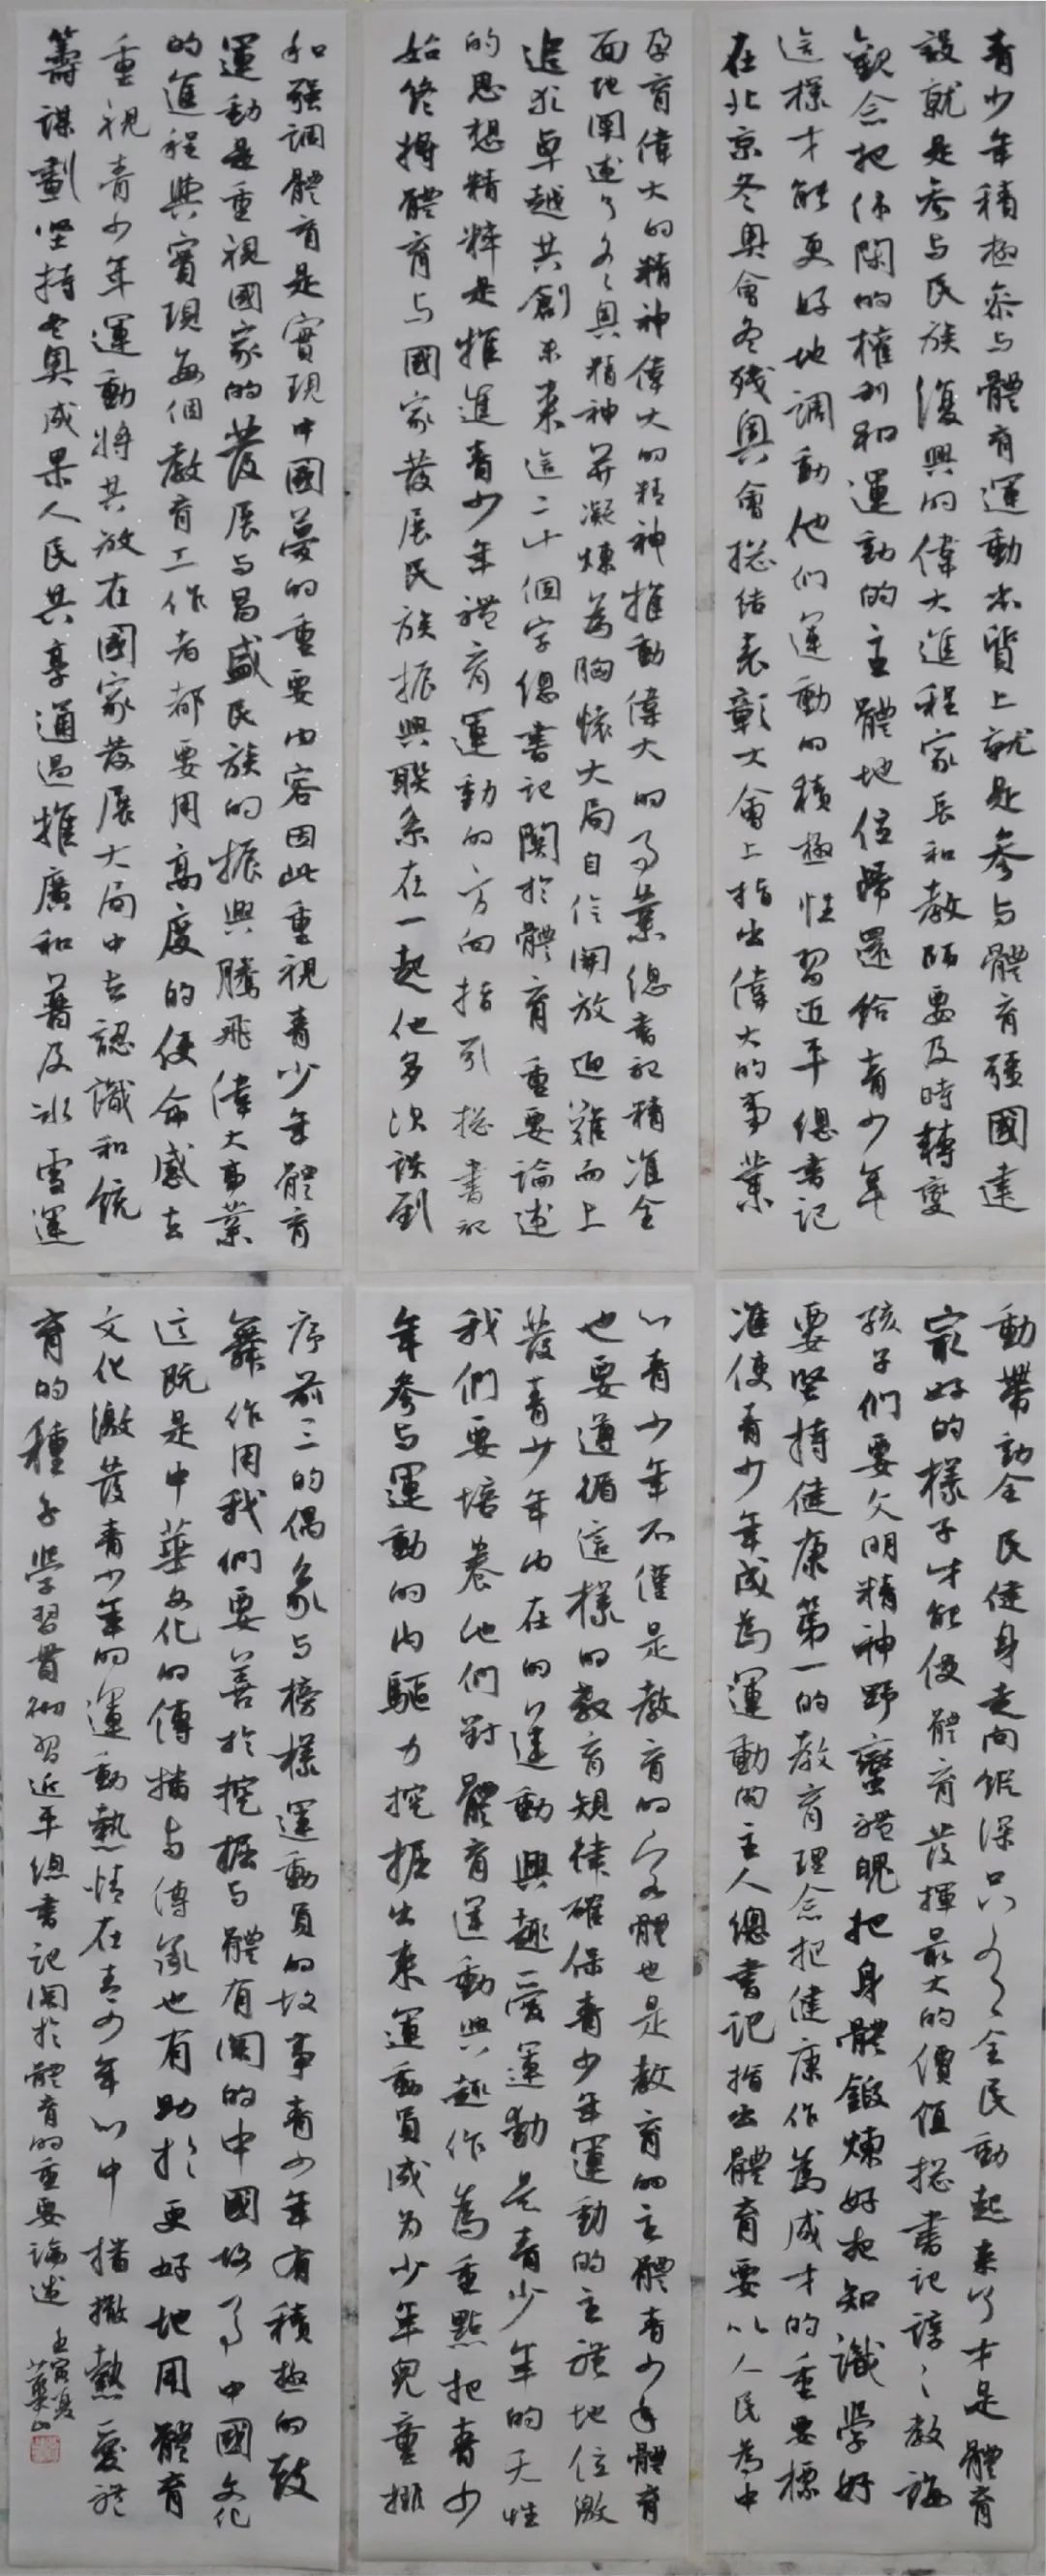 青少年積極參与體育運動本質上就是參与體育强國建
設就是參与民族復興的偉大進程家長和教師要及時轉變
觀念把休閑的權利和運動的主體地位歸還給青少年
這樣才能更好地調動他们運動的積極性習近平總書记
在北京冬奥會冬残奥會總结表彰大會上指出偉大的事業
孕育偉大的精神偉大的精神推動偉大的事業總書記精准全
面地闡述了冬奥精神并凝煉為胸懷大局自信開放迎難而上
追求卓越共創未来這二十個字總書记関於體育重要論述
的思想精粹是推進青少年體育運動的方向指引總書記
始終將體育与國家發展民族振興聯系在一起他多次談到
和强調體育是實現中國夢的重要内容因此重視青少年體育
運動是重視國家的發展与昌盛民族的振興騰飛偉大事業
的進程與實現每個教育工作者都要用高度的使命感去
重視青少年運動將其放在國家發展大局中去認識和統
籌謀劃坚持冬奥成果人民共享通過推廣和普及冰雪運
動帶動全民健身走向縱深只有全民動起来了才是體育
最好的樣子才能使體育發揮最大的價值總書记諄々教誨
孩子们要文明精神野蠻體魄把身體鍛煉好把知識學好
要坚持健康第一的教育理念把健康作為成才的重要標
准使青少年成爲運動的主人總書记指出體育要以人民為中
心青少年不僅是教育的客體也是教育的主體青少年體育
也要遵循這樣的教育規律確保青少年運動的主體地位激
發青少年内在的運動興趣愛運動是青少年的天性
我們要培養他們對體育運動興趣作為重點把青少
年參与運動的内驅力挖掘出来運動員成为少年兒童排
序前三的偶象与榜樣運動員的故事青少年有積極的鼓
舞作用我們要善於挖掘与體育関的中國故事中國文化
這既是中華文化的傳播与傳承也有助於更好地用體育
文化激發青少年的運動熱情在青少年心中播撒熱愛體
育的種子學習貫徹習近平總書记関於體育的重要論述